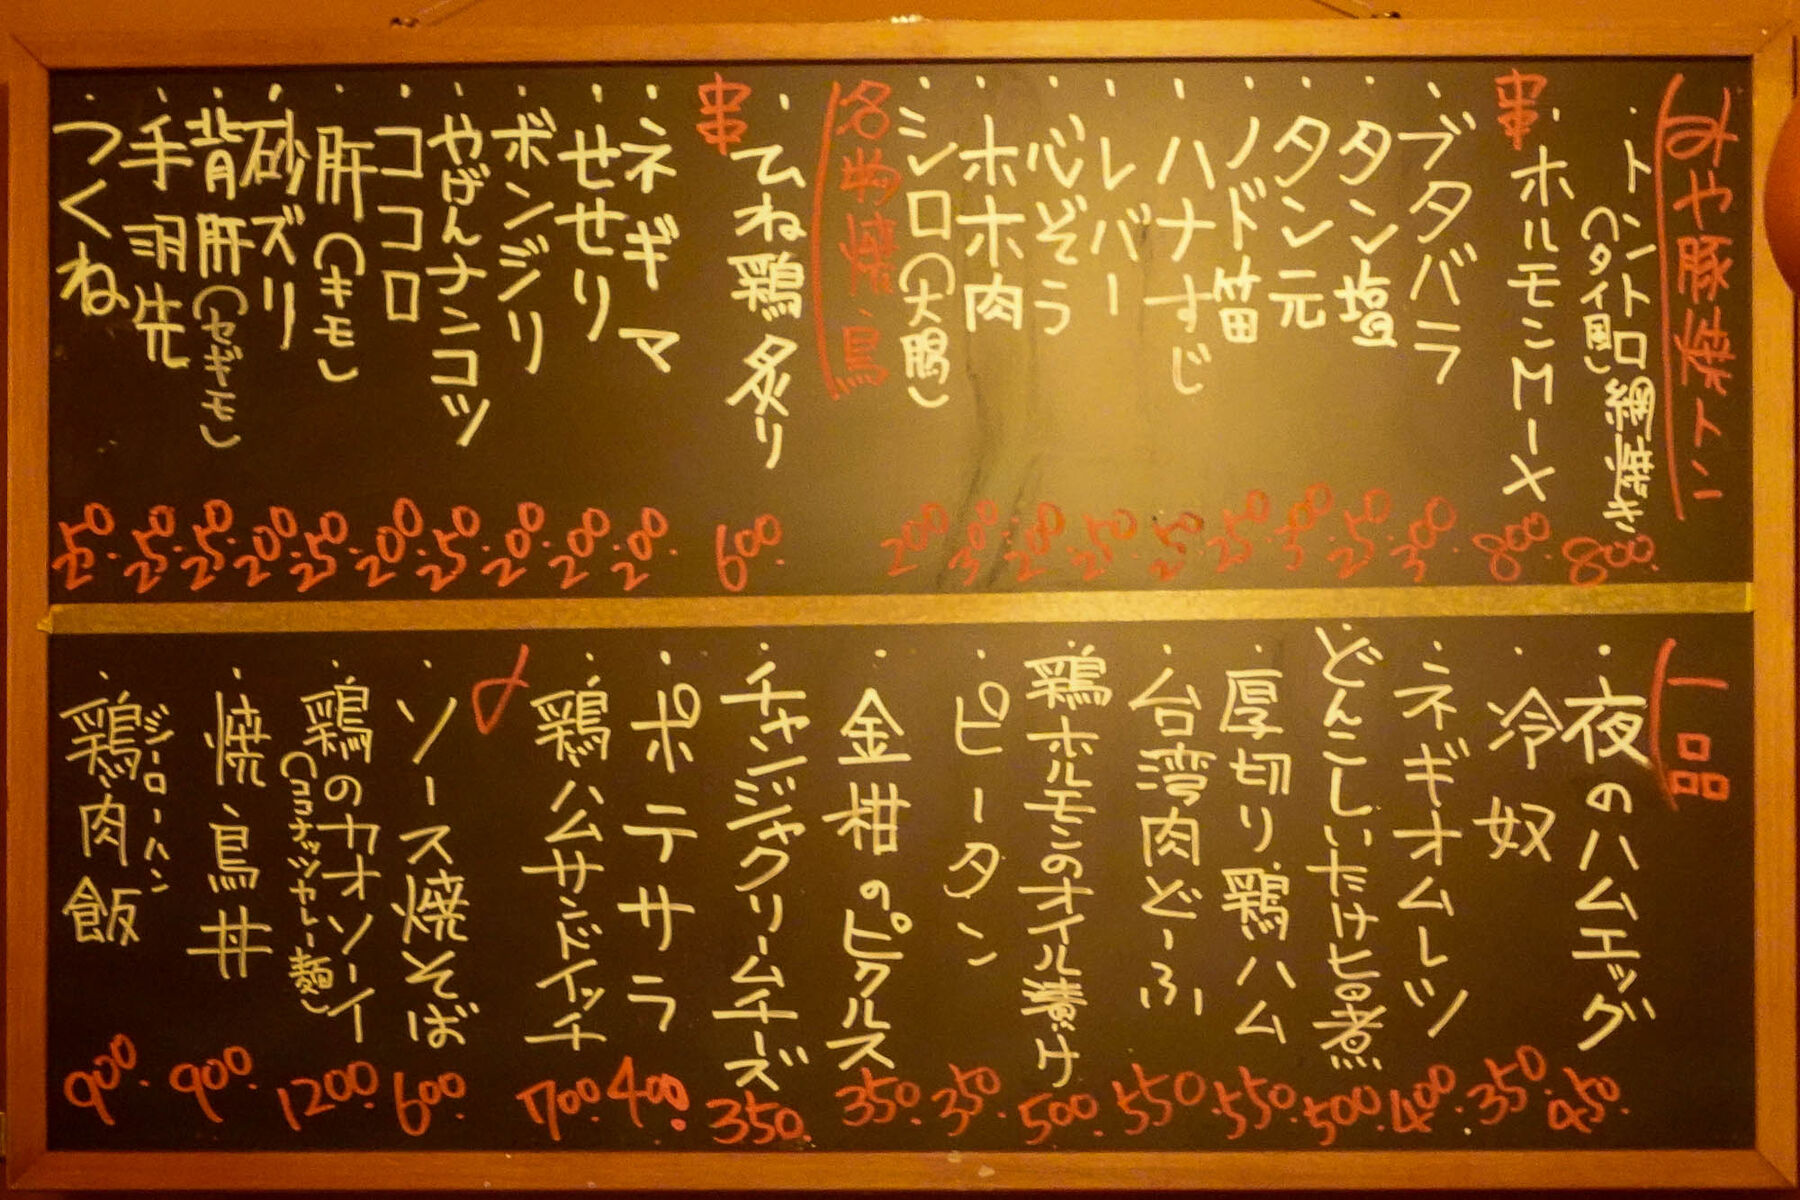 みや豚焼トン
・トントロ網焼き 800.
(タイ風)
串
・ホルモンMIX 800.
・ブタバラ 300.
・タン塩 250.
・タン元 300.
・ノド笛 250.
・ハナすじ 250.
・レバー 250.
・心ぞう 200.
・ホホ肉 300.
・シロ(大腸) 200.
名物焼鳥
・ひね鶏炙り 600.
串
・ネギマ 200.
・せせり 200.
・ボンジリ 200.
・やげんナンコツ 250.
・ココロ 200.
・肝(キモ) 250.
・砂ズリ 200.
・背肝(セギモ) 250.
・手羽先 250.
・つくね 250.
一品
・夜のハムエッグ 450.
・冷奴 350.
・ネギオムレツ 400.
・どんこしいたけ旨煮 500.
・厚切り鶏ハム 550.
・台湾肉どーふ 550.
・鶏ホルモンのオイル漬け 500.
・ピータン 350.
・金柑のピクルス 350.
・チャンジャクリームチーズ 350.
・ポテサラ 400.
・鶏ハムサンドイッチ 700.
〆
・ソース焼そば 600.
・鶏のカオソーイ 1200.
(ココナッツカレー麺)
・焼鳥丼 900.
ジーローハン
・鶏肉飯 900.